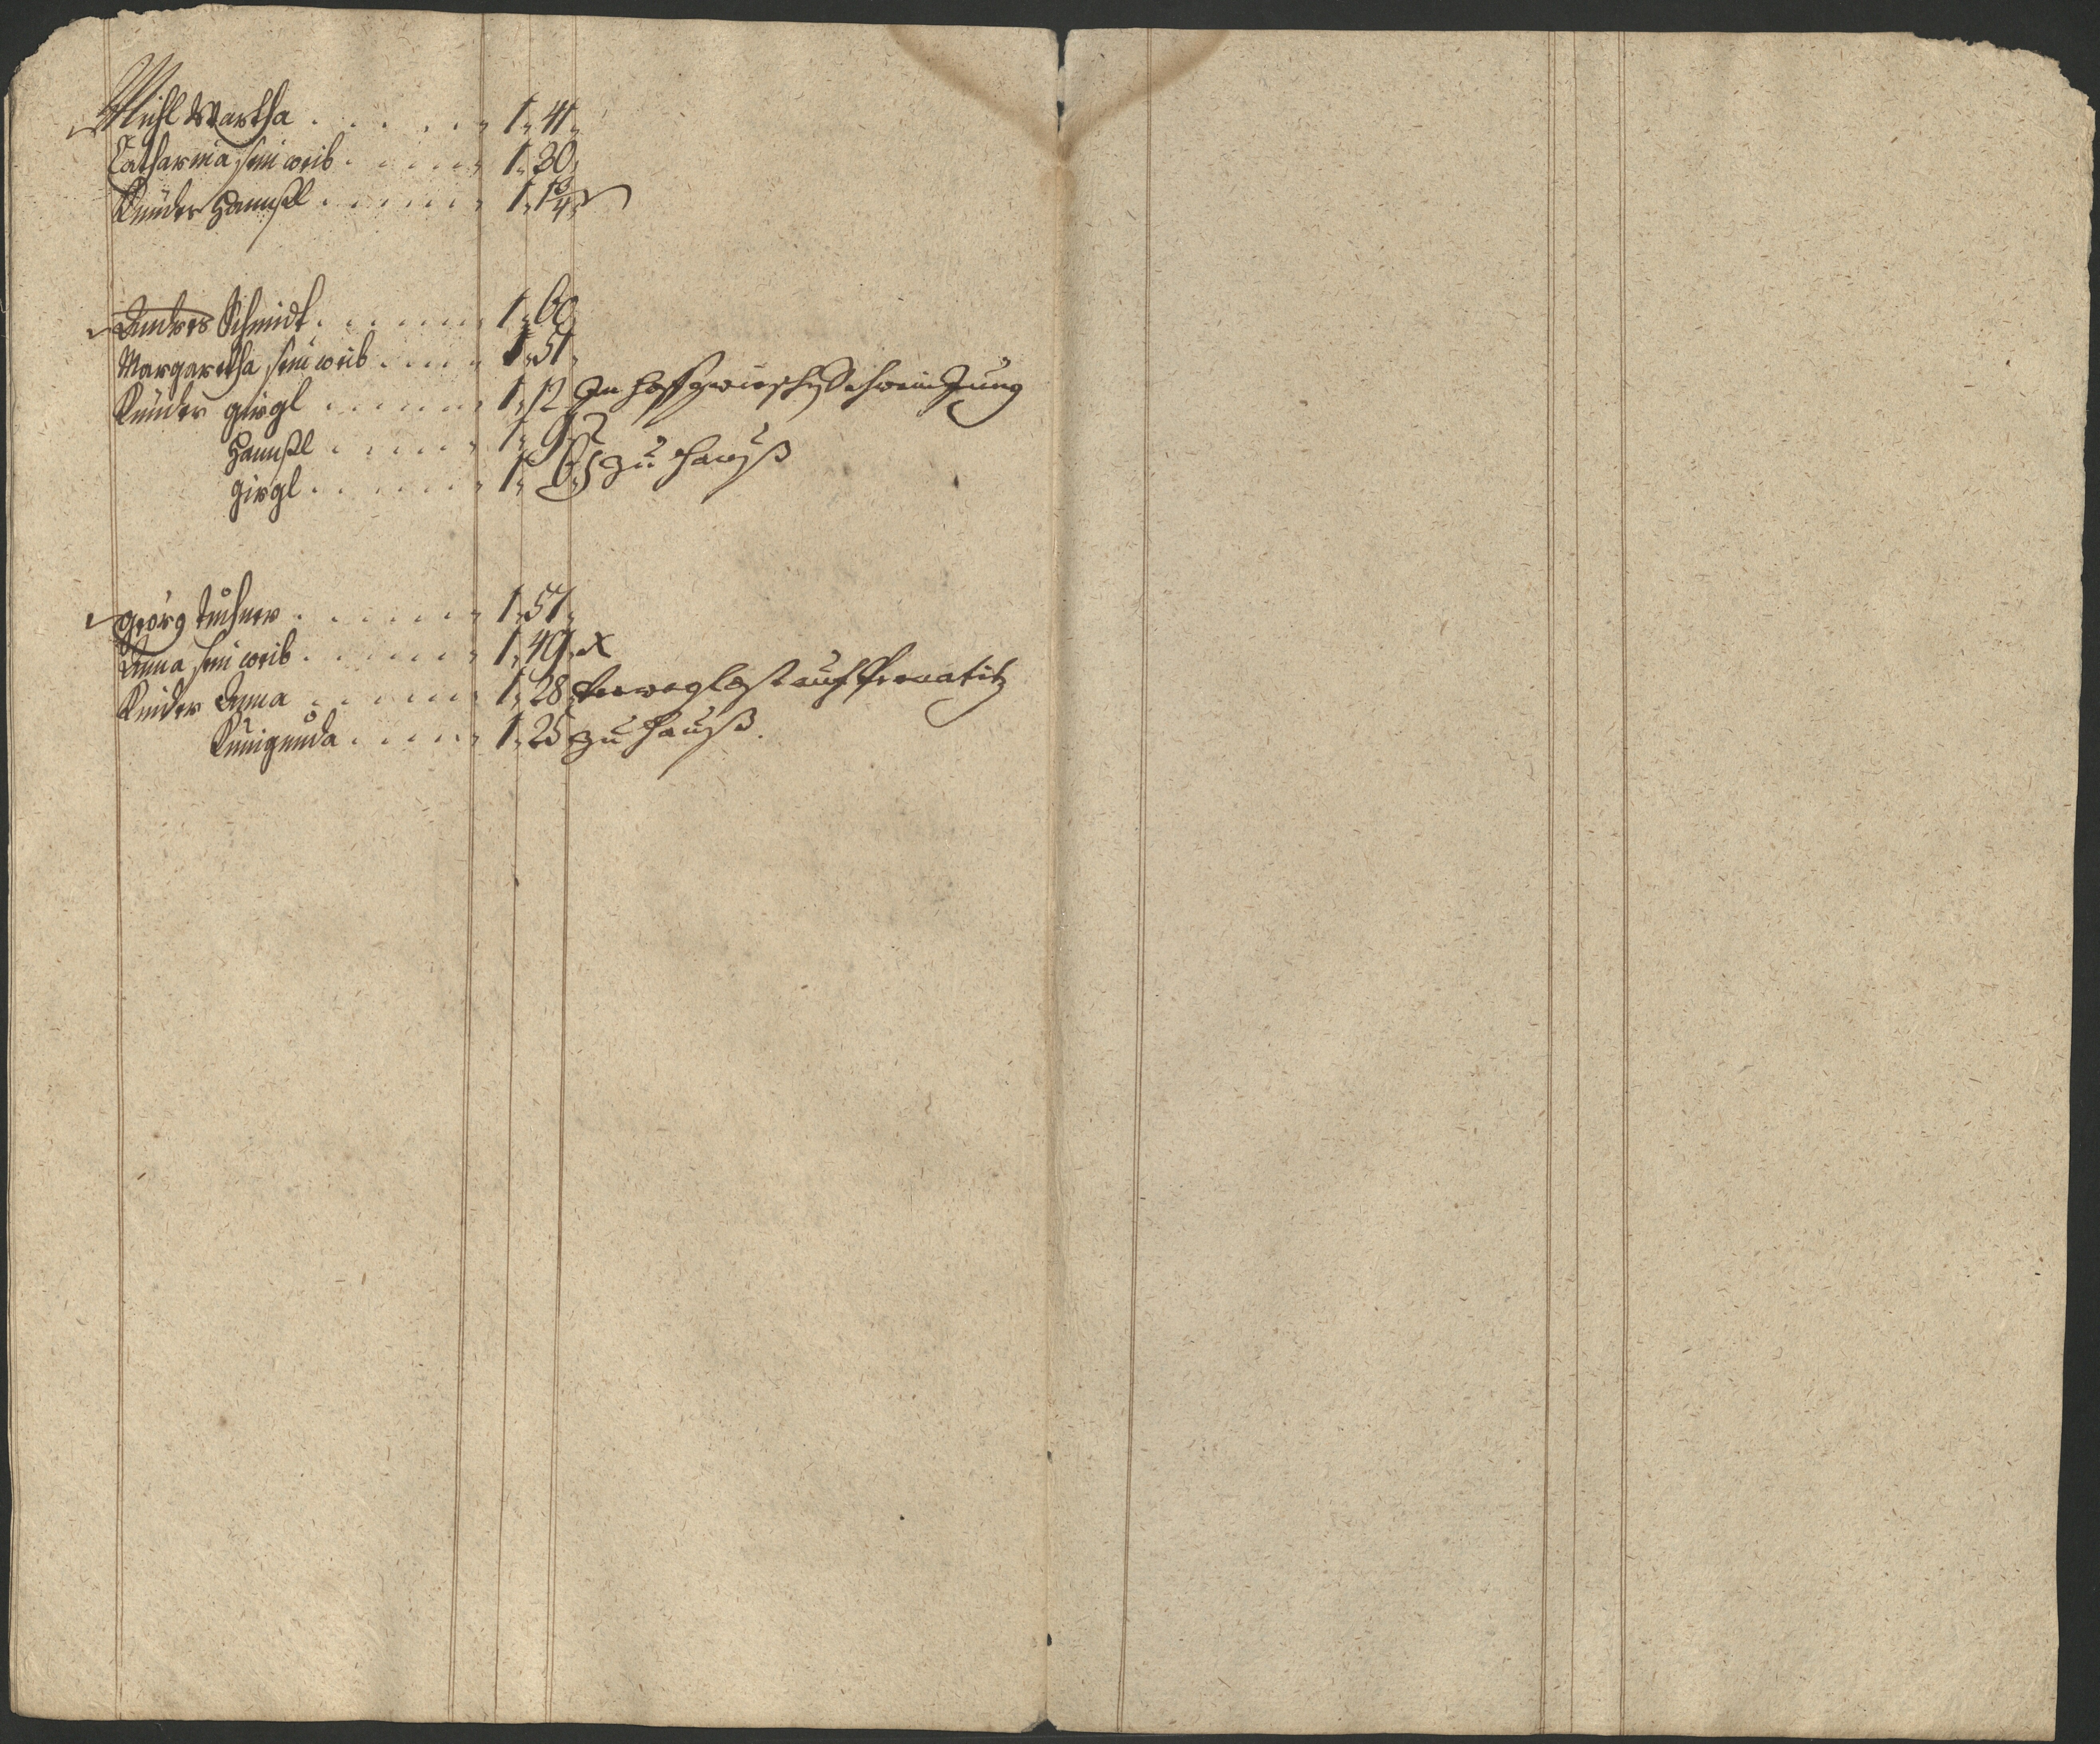 Michl Wartha . . . . . . 1„ 41„
Catharina sein weib . . . . . 1„ 30„
Künder Hannßl . . . . . . 1„ 1¾
Andres Schmidt . . . . . . 1„ 60
Margaretha sein weib . . . . 1„ 51„
Künder girgl . . . . . . 1„ 12 In Hoff Schwein Jung
Hannßl . . . . . 1„ 9„
girgl . . . . . . 1„ 6„ zu Hauß
georg . . . . . . 1„ 51„
Anna sein weib . . . . . . 1„ 49„ x
Kinder Anna . . . . . . 1„ 28 auf
Kunigunda . . . . . 1„ 25 zu Hauß.